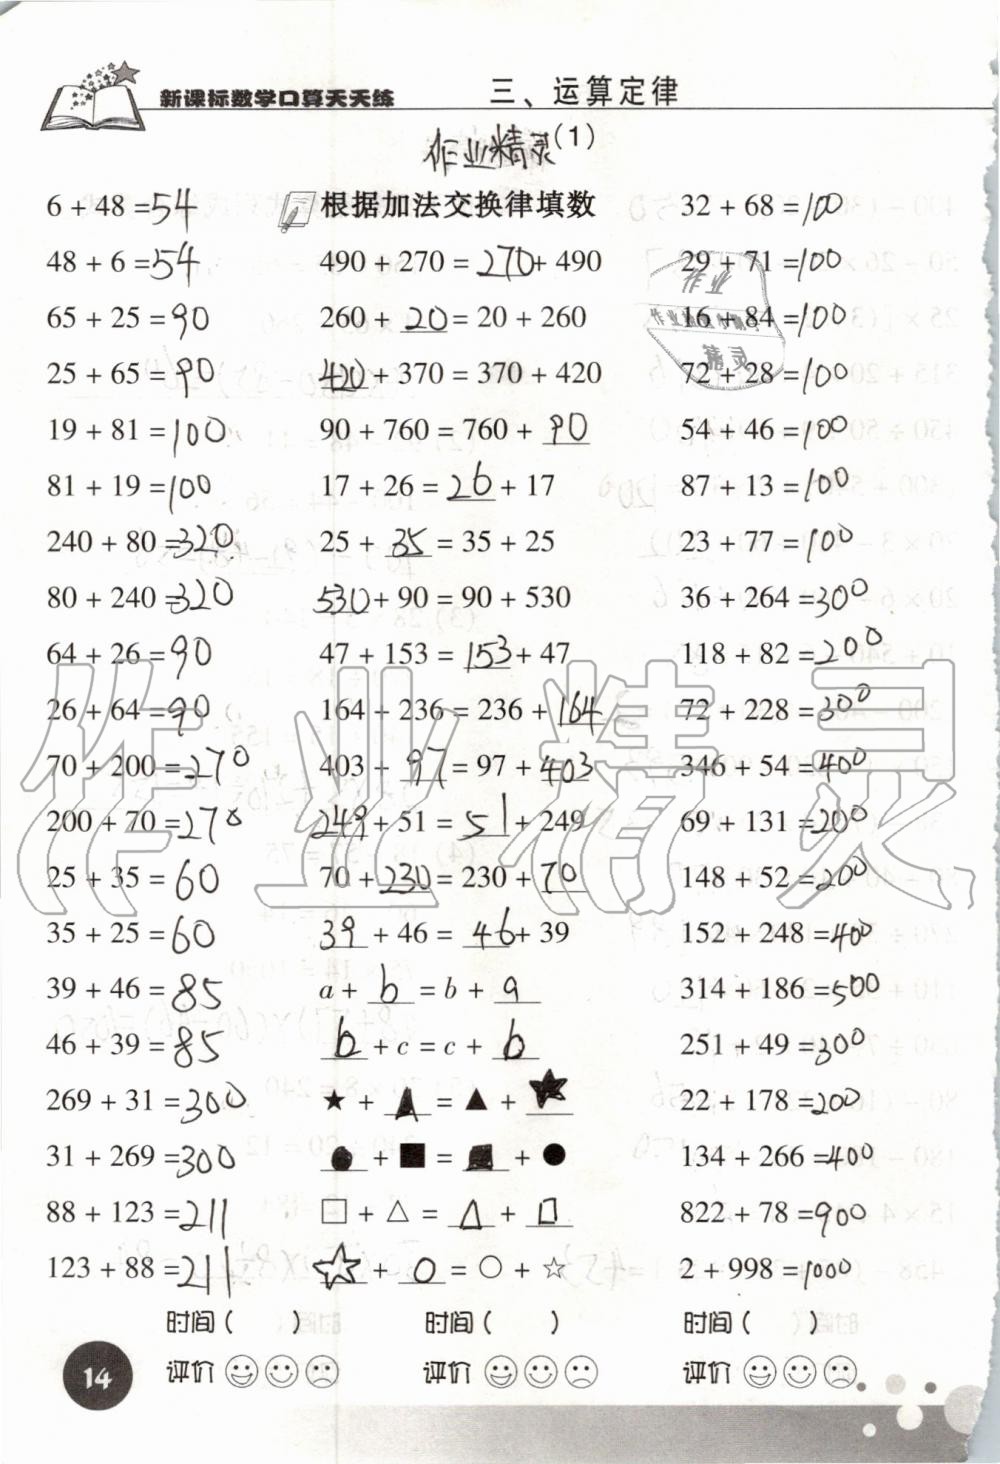 新课标数学口算天天练
三、运算定律
作业精灵(1)
6 + 48 = 54
48 + 6 = 54
65 + 25 = 90
25 + 65 = 90
19 + 81 = 100
81 + 19 = 100
240 + 80 = 320
80 + 240 = 320
64 + 26 = 90
26 + 64 = 90
70 + 200 = 270
200 + 70 = 270
25 + 35 = 60
35 + 25 = 60
39 + 46 = 85
46 + 39 = 85
269 + 31 = 300
31 + 269 = 300
88 + 123 = 211
123 + 88 = 211
时间( )
评价
根据加法交换律填数
490 + 270 = 270 + 490
260 + 20 = 20 + 260
420 + 370 = 370 + 420
90 + 760 = 760 + 90
17 + 26 = 26 + 17
25 + 35 = 35 + 25
530 + 90 = 90 + 530
47 + 153 = 153 + 47
164 + 236 = 236 + 164
403 + 97 = 97 + 403
249 + 51 = 51 + 249
70 + 230 = 230 + 70
39 + 46 = 46 + 39
a + b = b + a
b + c = c + b
★ + ▲ = ▲ + ★
● + ■ = ■ + ●
□ + △ = △ + □
☆ + ○ = ○ + ☆
时间( )
评价
32 + 68 = 100
29 + 71 = 100
16 + 84 = 100
72 + 28 = 100
54 + 46 = 100
87 + 13 = 100
23 + 77 = 100
36 + 264 = 300
118 + 82 = 200
72 + 228 = 300
346 + 54 = 400
69 + 131 = 200
148 + 52 = 200
152 + 248 = 400
314 + 186 = 500
251 + 49 = 300
22 + 178 = 200
134 + 266 = 400
822 + 78 = 900
2 + 998 = 1000
时间( )
评价
作业
精灵
作业精灵
14